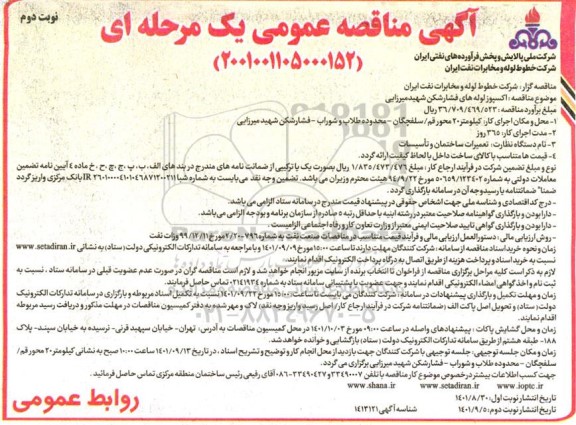 نوبت دوم
آگهی مناقصه عمومی یک مرحله ای
(۲۰۰۱۰۰۱۱۰۵۰۰۰۱۵۲)
شرکت ملی پالایش و پخش فرآورده های نفتی ایران
شرکت خطوط لوله و مخابرات نفت ایران
مناقصه گزار: شرکت خطوط لوله و مخابرات نفت ایران
موضوع مناقصه: اکسپوز لوله های فشارشکن شهید میرزایی
مبلغ برآورد مناقصه: ۳۶/۷۰۹/۴۶۹/۵۲۳ ریال
۱- محل و مکان اجرای کار: کیلومتر ۲۰ محور قم / سلفچگان - محدوده طلاب و شوراب - فشارشکن شهید میرزایی
۲- مدت اجرای کار: ۳۶۵ روز
۳- نام دستگاه نظارت: تعمیرات ساختمان و تأسیسات
۴- قیمت ها متناسب با کالای ساخت داخل با لحاظ کیفیت ارائه گردد.
نوع و مبلغ تضمین شرکت در فرآیند ارجاع کار: مبلغ ۱/۸۳۵/۴۷۳/۴۷۶ ریال بصورت یک یا ترکیبی از ضمانت نامه های مندرج در بند های الف، ب، پ، ج، چ، ح، خ ماده ۴ آیین نامه تضمین
معاملات دولتی به شماره ۱۲۳۴۰۲/ت ۵۰۶۵۹ ه مورخ ۹۴/۰۹/۲۲ هیئت محترم وزیران می باشد. تضمین وجه نقد می بایست به شماره شبا بانک مرکزی واریز گردد
ضمنا" ضمانتنامه یا رسید وجه آن در سامانه بارگذاری گردد.
- درج کد اقتصادی و شناسه ملی جهت اشخاص حقوقی در پیشنهاد قیمت مندرج در سامانه ستاد الزامی می باشد.
- دارا بودن و بارگذاری گواهینامه صلاحیت معتبر در رشته ابنیه با حداقل رتبه صادره از سازمان برنامه و بودجه الزامی می باشد.
- دارا بودن و بارگذاری گواهی تایید صلاحیت ایمنی معتبر از وزارت تعاون کار و رفاه اجتماعی الزامیست.
- روش ارزیابی مالی: دستورالعمل ارزیابی مالی و فرآیند قیمت متناسب در مناقصات صنعت نفت به شماره مورخ ۹۹/۱۲/۱۱ وزارت نفت
زمان و نحوه خرید اسناد مناقصه از سامانه: شرکت کنندگان مهلت دارند تا ساعت ۱۵:۰۰ مورخ ۱۴۰۱/۰۹/۰۹ با مراجعه به سامانه تدارکات الکترونیکی دولت (ستاد) به نشانی www.setadiran.ir
نسبت به خرید اسناد و پرداخت هزینه از طریق اتصال به درگاه پرداخت الکترونیک اقدام نمایند.
لازم به ذکر است کلیه مراحل برگزاری مناقصه از فراخوان تا انتخاب برنده از سایت مزبور انجام خواهد شد و لازم است مناقصه گران در صورت عدم عضویت قبلی در سامانه ستاد، نسبت به
ثبت نام و اخذ گواهی امضاء الکترونیکی اقدام نمایند و جهت عضویت با پشتیبانی سامانه ستاد به شماره تماس حاصل نمایند.
زمان و مهلت تکمیل و بارگذاری پیشنهادات در سامانه: شرکت کنندگان می بایست تا ساعت ۱۵:۰۰ مورخ ۱۴۰۱/۰۹/۲۲ نسبت به تکمیل اسناد مربوطه و بارگزاری در سامانه تدارکات الکترونیک
دولت (ستاد) و تحویل اصل پاکت الف (ضمانتنامه شرکت در فرآیند ارجاع کار، اصل رسید واریز وجه نقد) لاک و مهر شده به دفتر کمیسیون مناقصات در مهلت مذکور و دریافت رسید مربوطه
اقدام نمایند.
زمان و محل گشایش پاکات: پیشنهادهای واصله در ساعت ۰۹:۰۰ مورخ ۱۴۰۱/۱۰/۰۳ در محل کمیسیون مناقصات به آدرس: تهران- خیابان سپهبد قرنی- نرسیده به خیابان سپند- پلاک
۱۸۸- طبقه هشتم از طریق سامانه تدارکات الکترونیک دولت (ستاد) بازگشایی و خوانده خواهد شد.
زمان و مکان جلسه توجیهی: جلسه توجیهی با شرکت کنندگان جهت بازدید از محل انجام کار و توضیح و تشریح اسناد، در تاریخ ۱۴۰۱/۰۹/۱۳ ساعت ۱۰:۰۰ صبح به نشانی کیلومتر ۲۰ محور قم/
سلفچگان - محدوده طلاب و شوراب - فشارشکن شهید میرزایی برگزاری می گردد.
جهت کسب اطلاعات بیشتر در خصوص موضوع کار مناقصه با تلفن آقای رفیعی رئیس ساختمان منطقه مرکزی تماس حاصل فرمائید.
www.shana.ir www.setadiran.ir www.ioptc.ir
تاریخ انتشار نوبت اول: ۱۴۰۱/۸/۳۰
تاریخ انتشار نوبت دوم: ۱۴۰۱/۹/۵
شناسه آگهی ۱۴۱۳۱۲۱
روابط عمومی